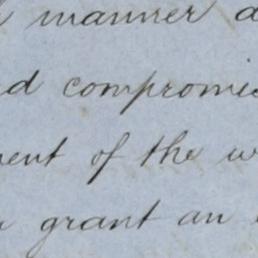 manner
compromis
of the
grant an